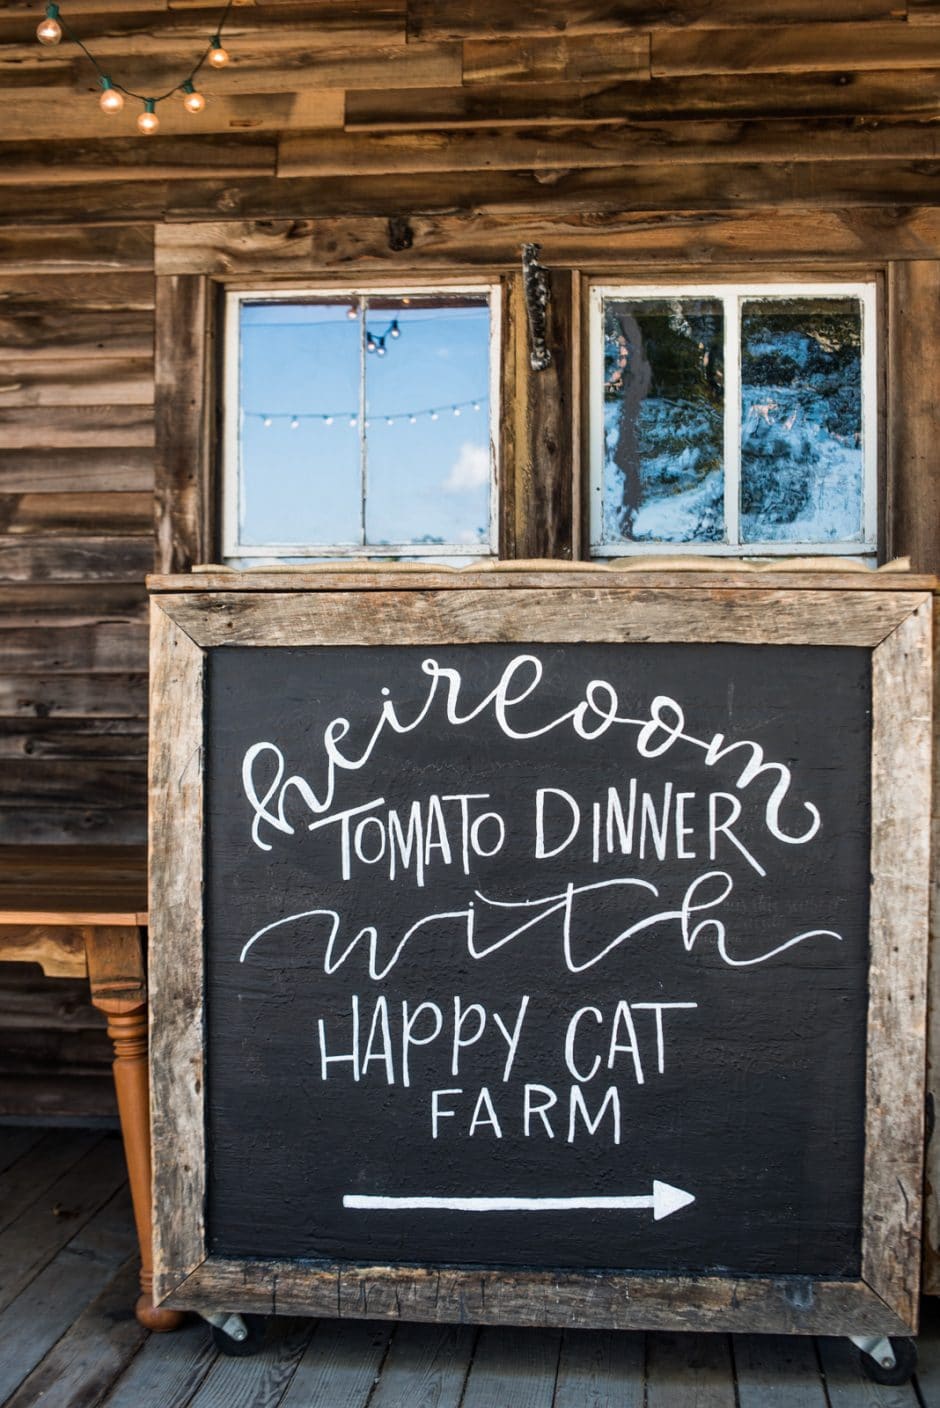 heirloom
TOMATO DINNER
with
HAPPY CAT
FARM